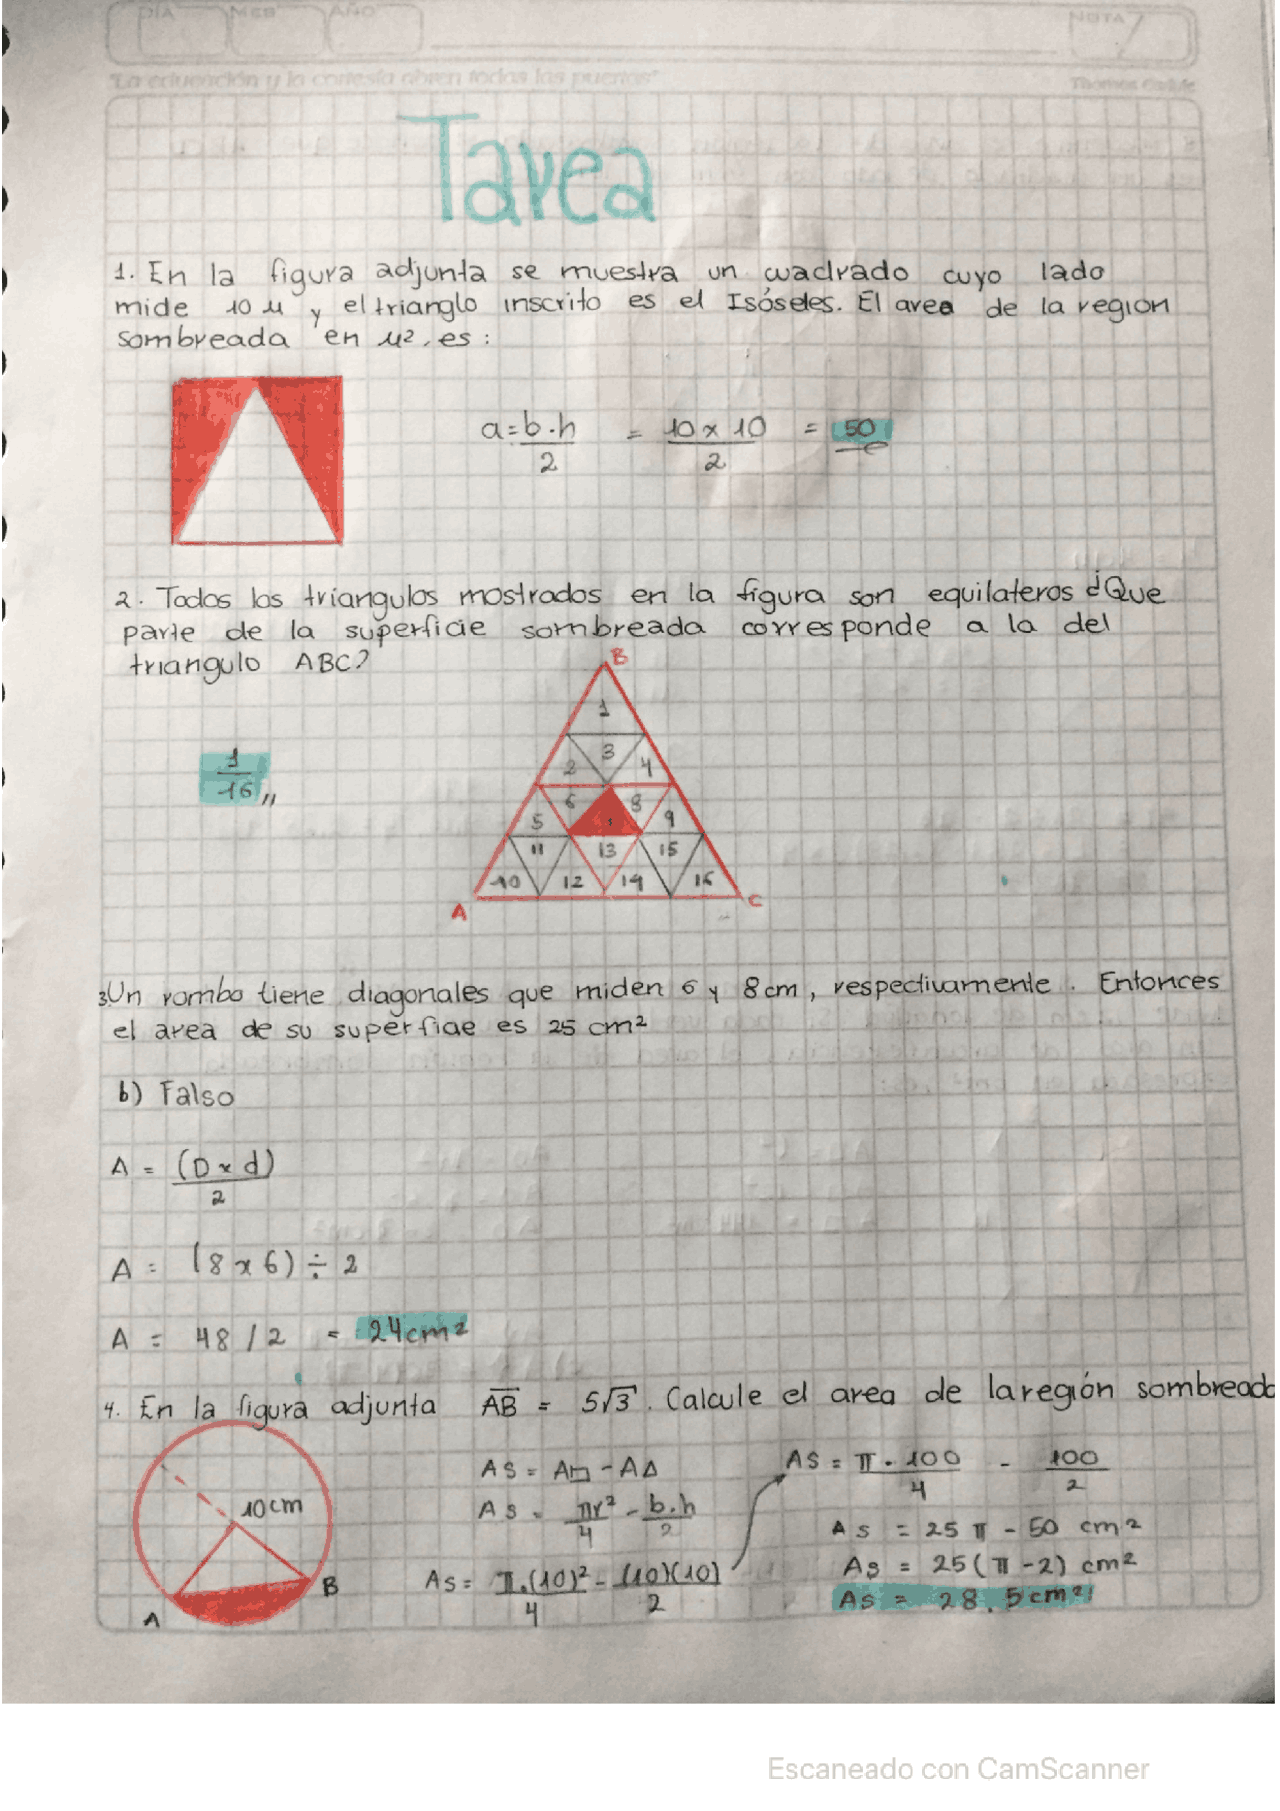 DÍA MES AÑO NOTA
"La educación y la cortesía abren todas las puertas"
Tarea
1. En la figura adjunta se muestra un cuadrado cuyo lado
mide 10 μ y el trianglo inscrito es el Isóseles. El area de la region
sombreada en μ², es :
a = b . h / 2 = 10 x 10 / 2 = 50
2. Todos los triangulos mostrados en la figura son equilateros ¿Que
parte de la superficie sombreada corresponde a la del
triangulo ABC?
B
1
2 3 4
1/16 //
5 6 8 9
10 11 12 13 14 15 16
A C
3 Un rombo tiene diagonales que miden 6 y 8 cm, respectivamente. Entonces
el area de su superficie es 25 cm²
b) Falso
A = (D x d) / 2
A = (8 x 6) ÷ 2
A = 48 / 2 = 24 cm²
4. En la figura adjunta AB = 5√3. Calcule el area de la región sombreada
10 cm
A B
AS = A◺ - AΔ
AS = πr²/4 - b.h/2
AS = π.(10)²/4 - (10)(10)/2
AS = π . 100/4 - 100/2
As = 25 π - 50 cm²
As = 25(π - 2) cm²
As = 28.5 cm²
Escaneado con CamScanner